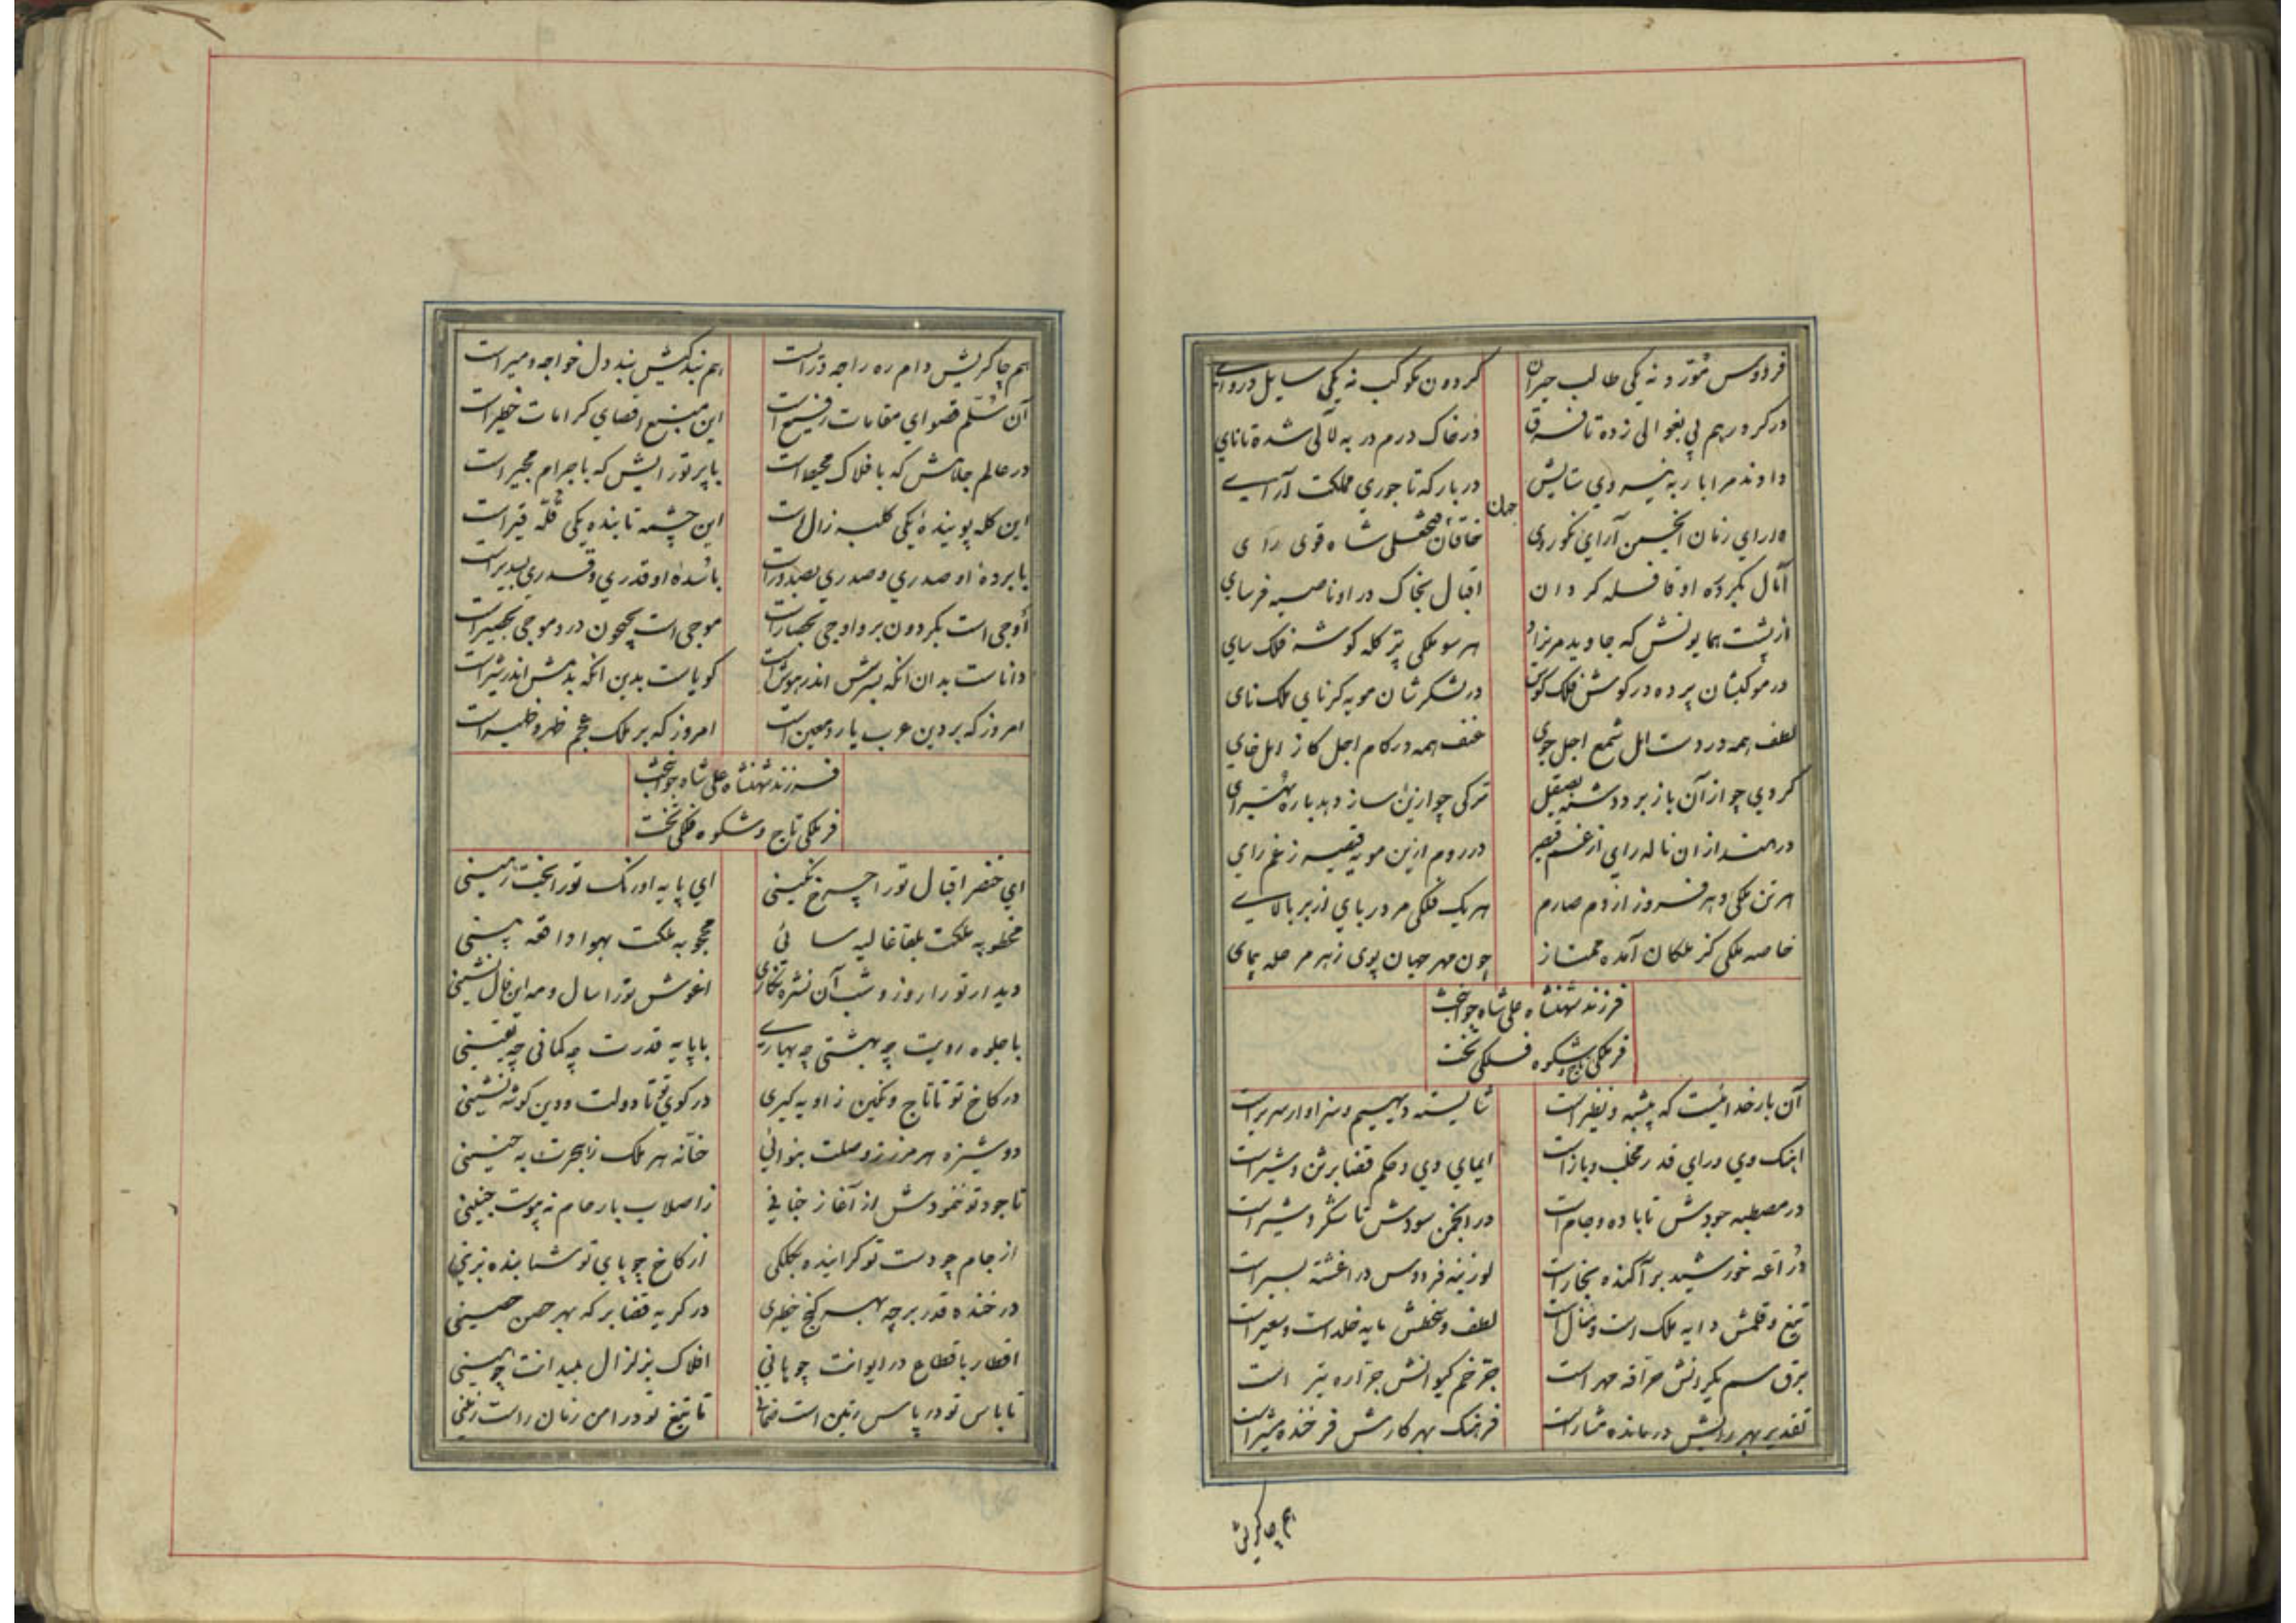 فردوس مُتوّر و نه یکی طالب حیران
گردون بکوکب نه یکی سایل دروای
در کر و رهم پی بغوالی زده تا فرق
در خاک درم در به لآلی شده تا نای
دادند مرا بار به نیروی ستایش
در بارکه تاجوری مملکت آرای
دارای زمان انجمن آرای نکوروی
خاقان جهان فتحعلی شاه قوی رای
آمال بکرد در او قافله کردان
اقبال بخاک در او ناصیه فرسای
از پشت همایونش که جاوید مریزاد
هر سو ملکی بر کله کوشه فلک سای
در موکبشان پرده در کوش فلک کوس
در لشکرشان مویه کر نای ملک نای
لطف همه در دست امل شمع اجل جوی
عنف همه در کام اجل کاز امل خای
کردی چو از آن باز برد دشنه بصیقل
ترکی چو ازین ساز دهد باره بهرای
در هند از ان ناله رای از غم قیصر
در روم ازین مویه قیصر ز غم رای
هر تن ملکی دهر فروز از دم صارم
هر یک فلکی مردربای از بر بالای
خاصه ملکی کز ملکان آمده ممتاز
چون مهر جهان پوی ز هر مرحله پیمای
فرزند شهنشاه علی شاه جوانبخت
فر ملکی تاج و شکوه فلکی تخت
آن بار خدائیست که بیشبه و نظیر است
شایسته دیهیم و سزاوار سریر است
اینک وی و رای قدر مخلب و باز است
ایمای وی و حکم قضا برثن و شیر است
در مصطبه جودش تا باده و جام است
در انجمن سودش تا شکر و شیر است
درّاعه خورشید برآکنده بخار است
لوزینه فردوس در اغشته بسیر است
تیغ و قلمش دایه ملک است و منال است
لطف و سخطش مایه خلد است و سعیر است
برق سم یکرانش حرّاقه مهر است
چتر خم کیوانش جرّاره تیر است
تقدیر بهر رایش درمانده مشار است
فرهنک بهر کارش فرخنده مشیر است
هم چاکریش
هم چاکریش دام ره راجه و رای است
هم بندکیش بند دل خواجه و میر است
آن سُلّم قصوای مقامات رفیع است
این منبع اقصای کرامات خطیر است
در عالم جلالش که بافلاک محیط است
با پرتو رایش که باجرام مجیر است
این کله پوینده یکی کلبه زال است
این چشمه تابنده یکی قُلّه قیر است
با برده او صدری و صدری بصدور است
با شده او قدری و قدری بسدیر است
اوجی است بکردون بر و اوجی بحصار است
موجی است بجیحون در و موجی بغدیر است
داناست بدان انکه بسرش اندر هوش است
کویاست بدین انکه بدش اندر شیر است
امروز که بر دین عرب یار و معین است
امروز که بر ملک عجم ظهر و ظهیر است
فرزند شهنشاه علی شاه جوانبخت
فر ملکی تاج و شکوه فلکی تخت
ای خنصر اقبال تورا چرخ نکینی
ای پایه اورنک تورا بخت زمینی
مخطوبه ملکت بلقا غالیه سائی
محجوبه ملکت بهوا واقعه بینی
دیدار تورا روز و شب آن نشره نکاری
اغوش تورا سال و مه این فال نشینی
با جلوه رویت چه بهشتی چه بهاری
با پایه قدرت چه کمانی چه یقینی
در کاخ تو تا تاج و نکین زاویه کیری
در کوی تو تا دولت و دین کوشه نشینی
دوشیزه هر مرز ز وصلت بنوائی
خانه هر ملک ز هجرت به حنینی
تا جود تو ننمودش از آغاز
ز اصلاب بارحام نه پیوست جنینی
از جام چو دست تو کراینده بکلکی
از کاخ چو پای تو شتابنده بزینی
در خنده قدر بر چه بهر کنج خطیری
در کریه قضا بر که بهر حصن حصینی
اقطار باقطاع در ایوانت چو
افلاک بزلزال بمیدانت چو
تا باس تو در پاس زمین است
تا تیغ تو در امن زمان راست